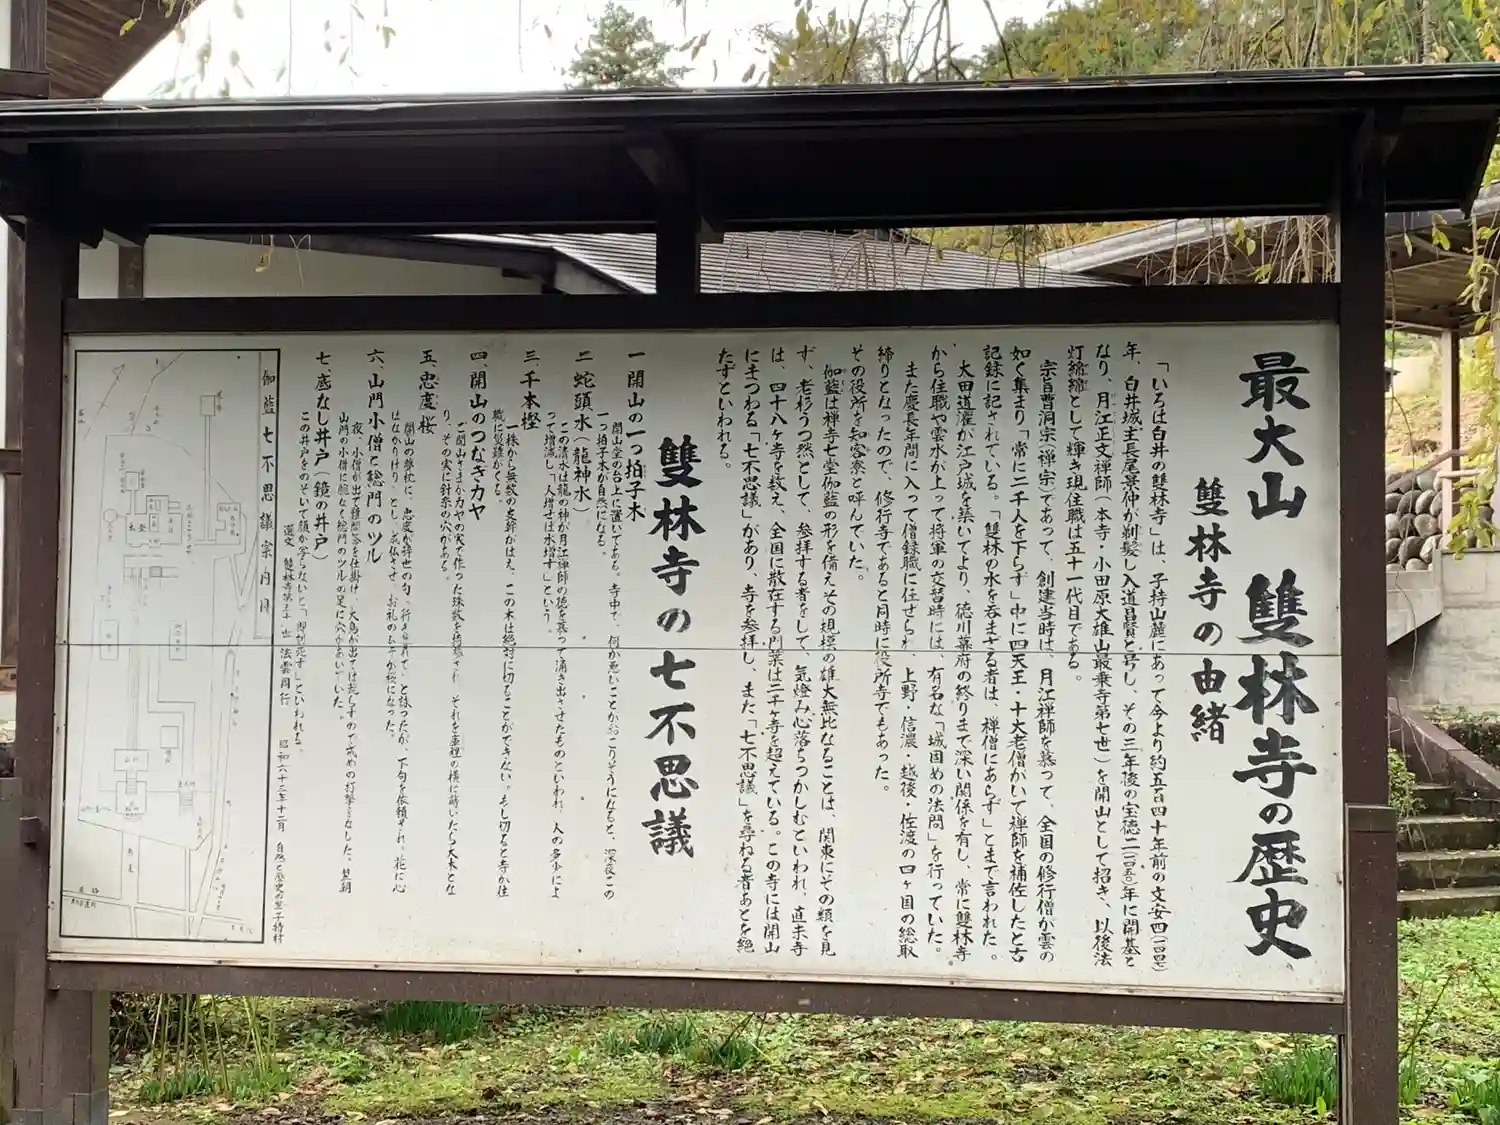 最大山 雙林寺の歴史
雙林寺の由緒
「いろは白井の雙林寺」は、子持山麓にあって今より約五百四十年前の文安四(一四四七)
年、白井城主長尾景仲が剃髪し入道昌賢と号し、その三年後の宝徳二(一四五〇)年に開基と
なり、月江正文禅師(本寺・小田原大雄山最乗寺第七世)を開山として招き、以後法
灯綿綿として輝き現住職は五十一代目である。
宗旨曹洞宗(禅宗)であって、創建当時は、月江禅師を慕って、全国の修行僧が雲の
如く集まり「常に二千人を下らず」中に四天王・十大老僧がいて禅師を補佐したと古
記録に記されている。「雙林の水を呑まざる者は、禅僧にあらず」とまで言われた。
太田道灌が江戸城を築いてより、徳川幕府の終りまで深い関係を有し、常に雙林寺
から住職や雲水が上って将軍の交替時には、有名な「城固めの法問」を行っていた。
また慶長年間に入って僧録職に任せられ、上野・信濃・越後・佐渡の四ヶ国の総取
締りとなったので、修行寺であると同時に役所寺でもあった。
その役所を知客寮と呼んでいた。
伽藍は禅寺七堂伽藍の形を備えその規模の雄大無比なることは、関東にその類を見
ず、老杉うつ然として、参拝する者をして、気澄み心落ちつかしむといわれ、直末寺
は、四十八ヶ寺を数え、全国に散在する門葉は二千ヶ寺を超えている。この寺には開山
にまつわる「七不思議」があり、寺を参拝し、また「七不思議」を尋ねる者あとを絶
たずといわれる。
雙林寺の七不思議
一 開山の一つ拍子木
開山堂の台上に置いてある。寺中で、何か悪いことがおこりそうになると、深夜この
一つ拍子木が自然になる。
二 蛇頭水(龍神水)
この清水は龍の神が月江禅師の徳を慕って涌き出させたものといわれ、人の多少によ
って増減し「人増せば水増す」という。
三、千本樫
一株から無数の支幹がはえ、この木は絶対に切ることができない。もし切ると寺か住
職に災難がくる。
四、開山のつなぎカヤ
ご開山さまがカヤの実で作った珠数を持参され、それを座禅の横に蒔いたら大木とな
り、その実に針奈の穴がある。
五、忠度桜
開山の夢枕に、忠度が辞世の句「行き暮れて」と詠ったが、下句を依頼され「花に心
はなかりけり」とし、成仏させ、お礼のムチが桜になった。
六、山門小僧と総門のツル
夜、小僧が出て難問答を仕掛け、大鳥が出ては荒らすので戒めの打撃をなした。翌朝
山門の小僧に腕なく総門のツルの足に穴があいていた。
七、底なし井戸(鏡の井戸)
この井戸をのぞいて顔が写らないと「即刻死す」といわれる。
選文 雙林寺第五十一世 法雲同行 昭和六十三年十二月 自然と歴史の里子持村
伽藍七不思議案内図